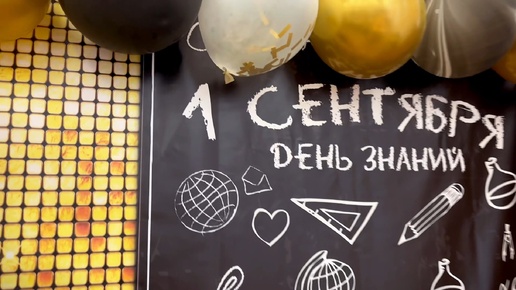 1 СЕНТЯБРЯ
ДЕНЬ ЗНАНИЙ